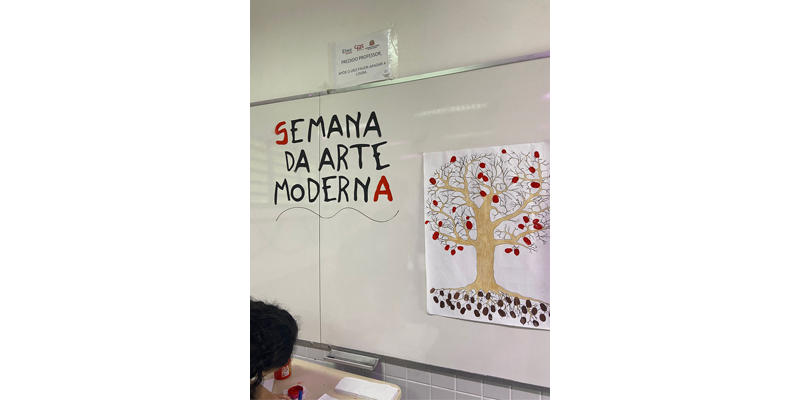 Etec
CPS
PREZADO PROFESSOR,
APÓS O USO FAVOR APAGAR A
LOUSA.
SEMANA
DA ARTE
MODERNA